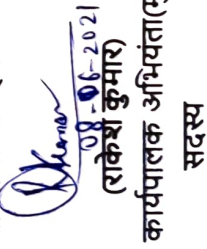 RKumar
08-06-2021
(राकेश कुमार)
कार्यपालक अभियंता(मु
सदस्य